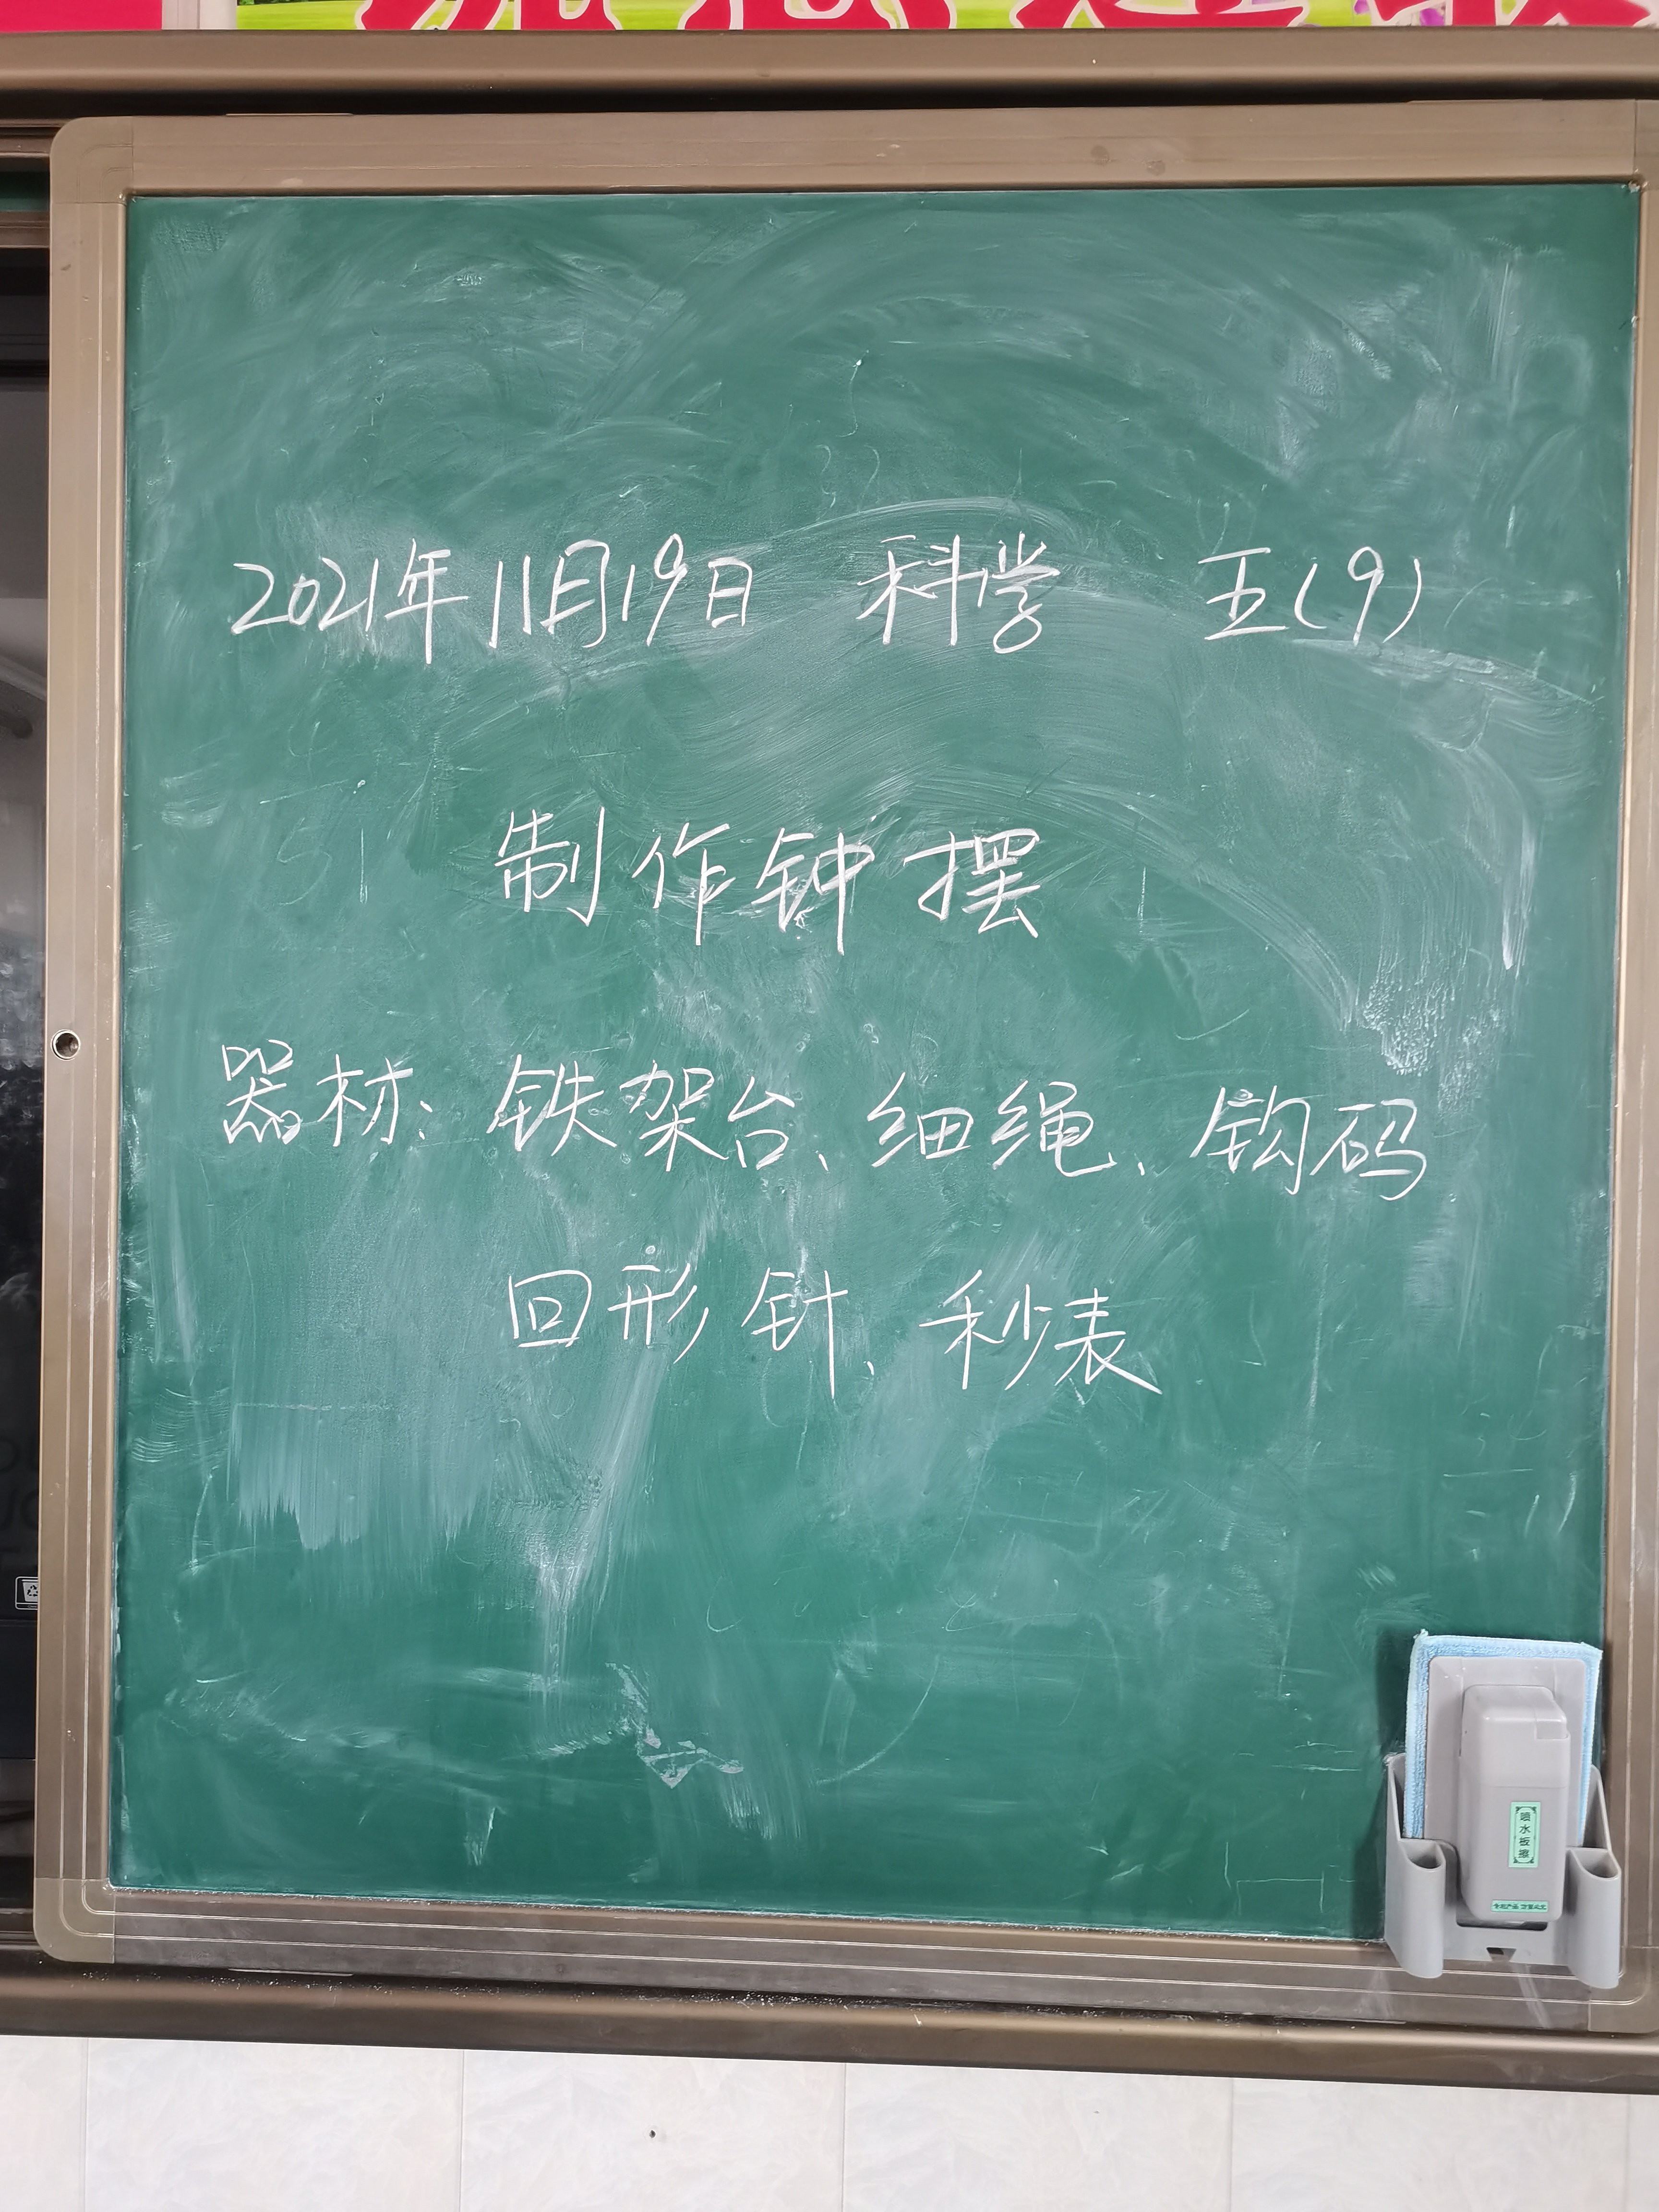 2021年11月19日 科学 五(9)
制作钟摆
器材：铁架台、细绳、钩码
回形针、秒表
喷水板擦